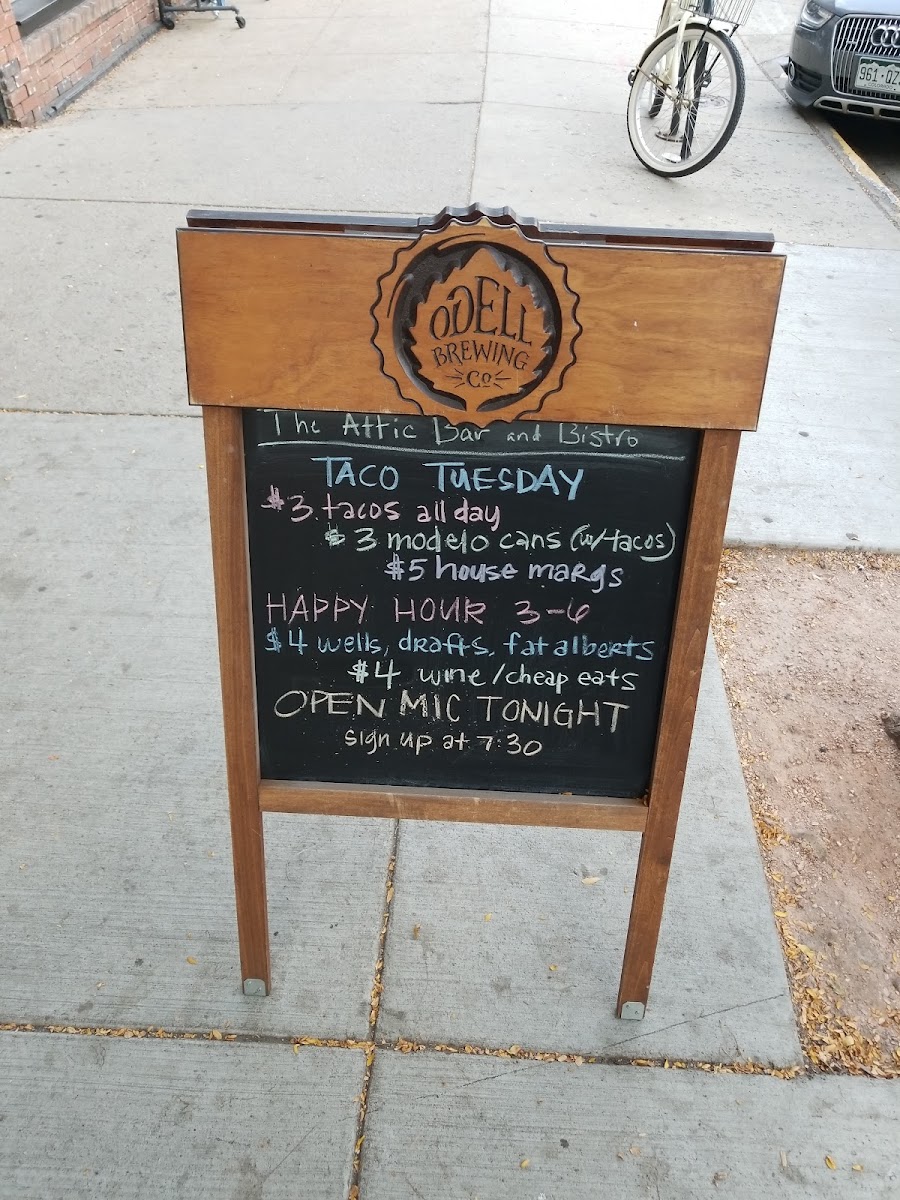 961·OZ
ODELL
BREWING
CO
The Attic Bar and Bistro
TACO TUESDAY
$3 tacos all day
$3 modelo cans (w/tacos)
$5 house margs
HAPPY HOUR 3-6
$4 wells, drafts, fat alberts
$4 wine/cheap eats
OPEN MIC TONIGHT
sign up at 7:30